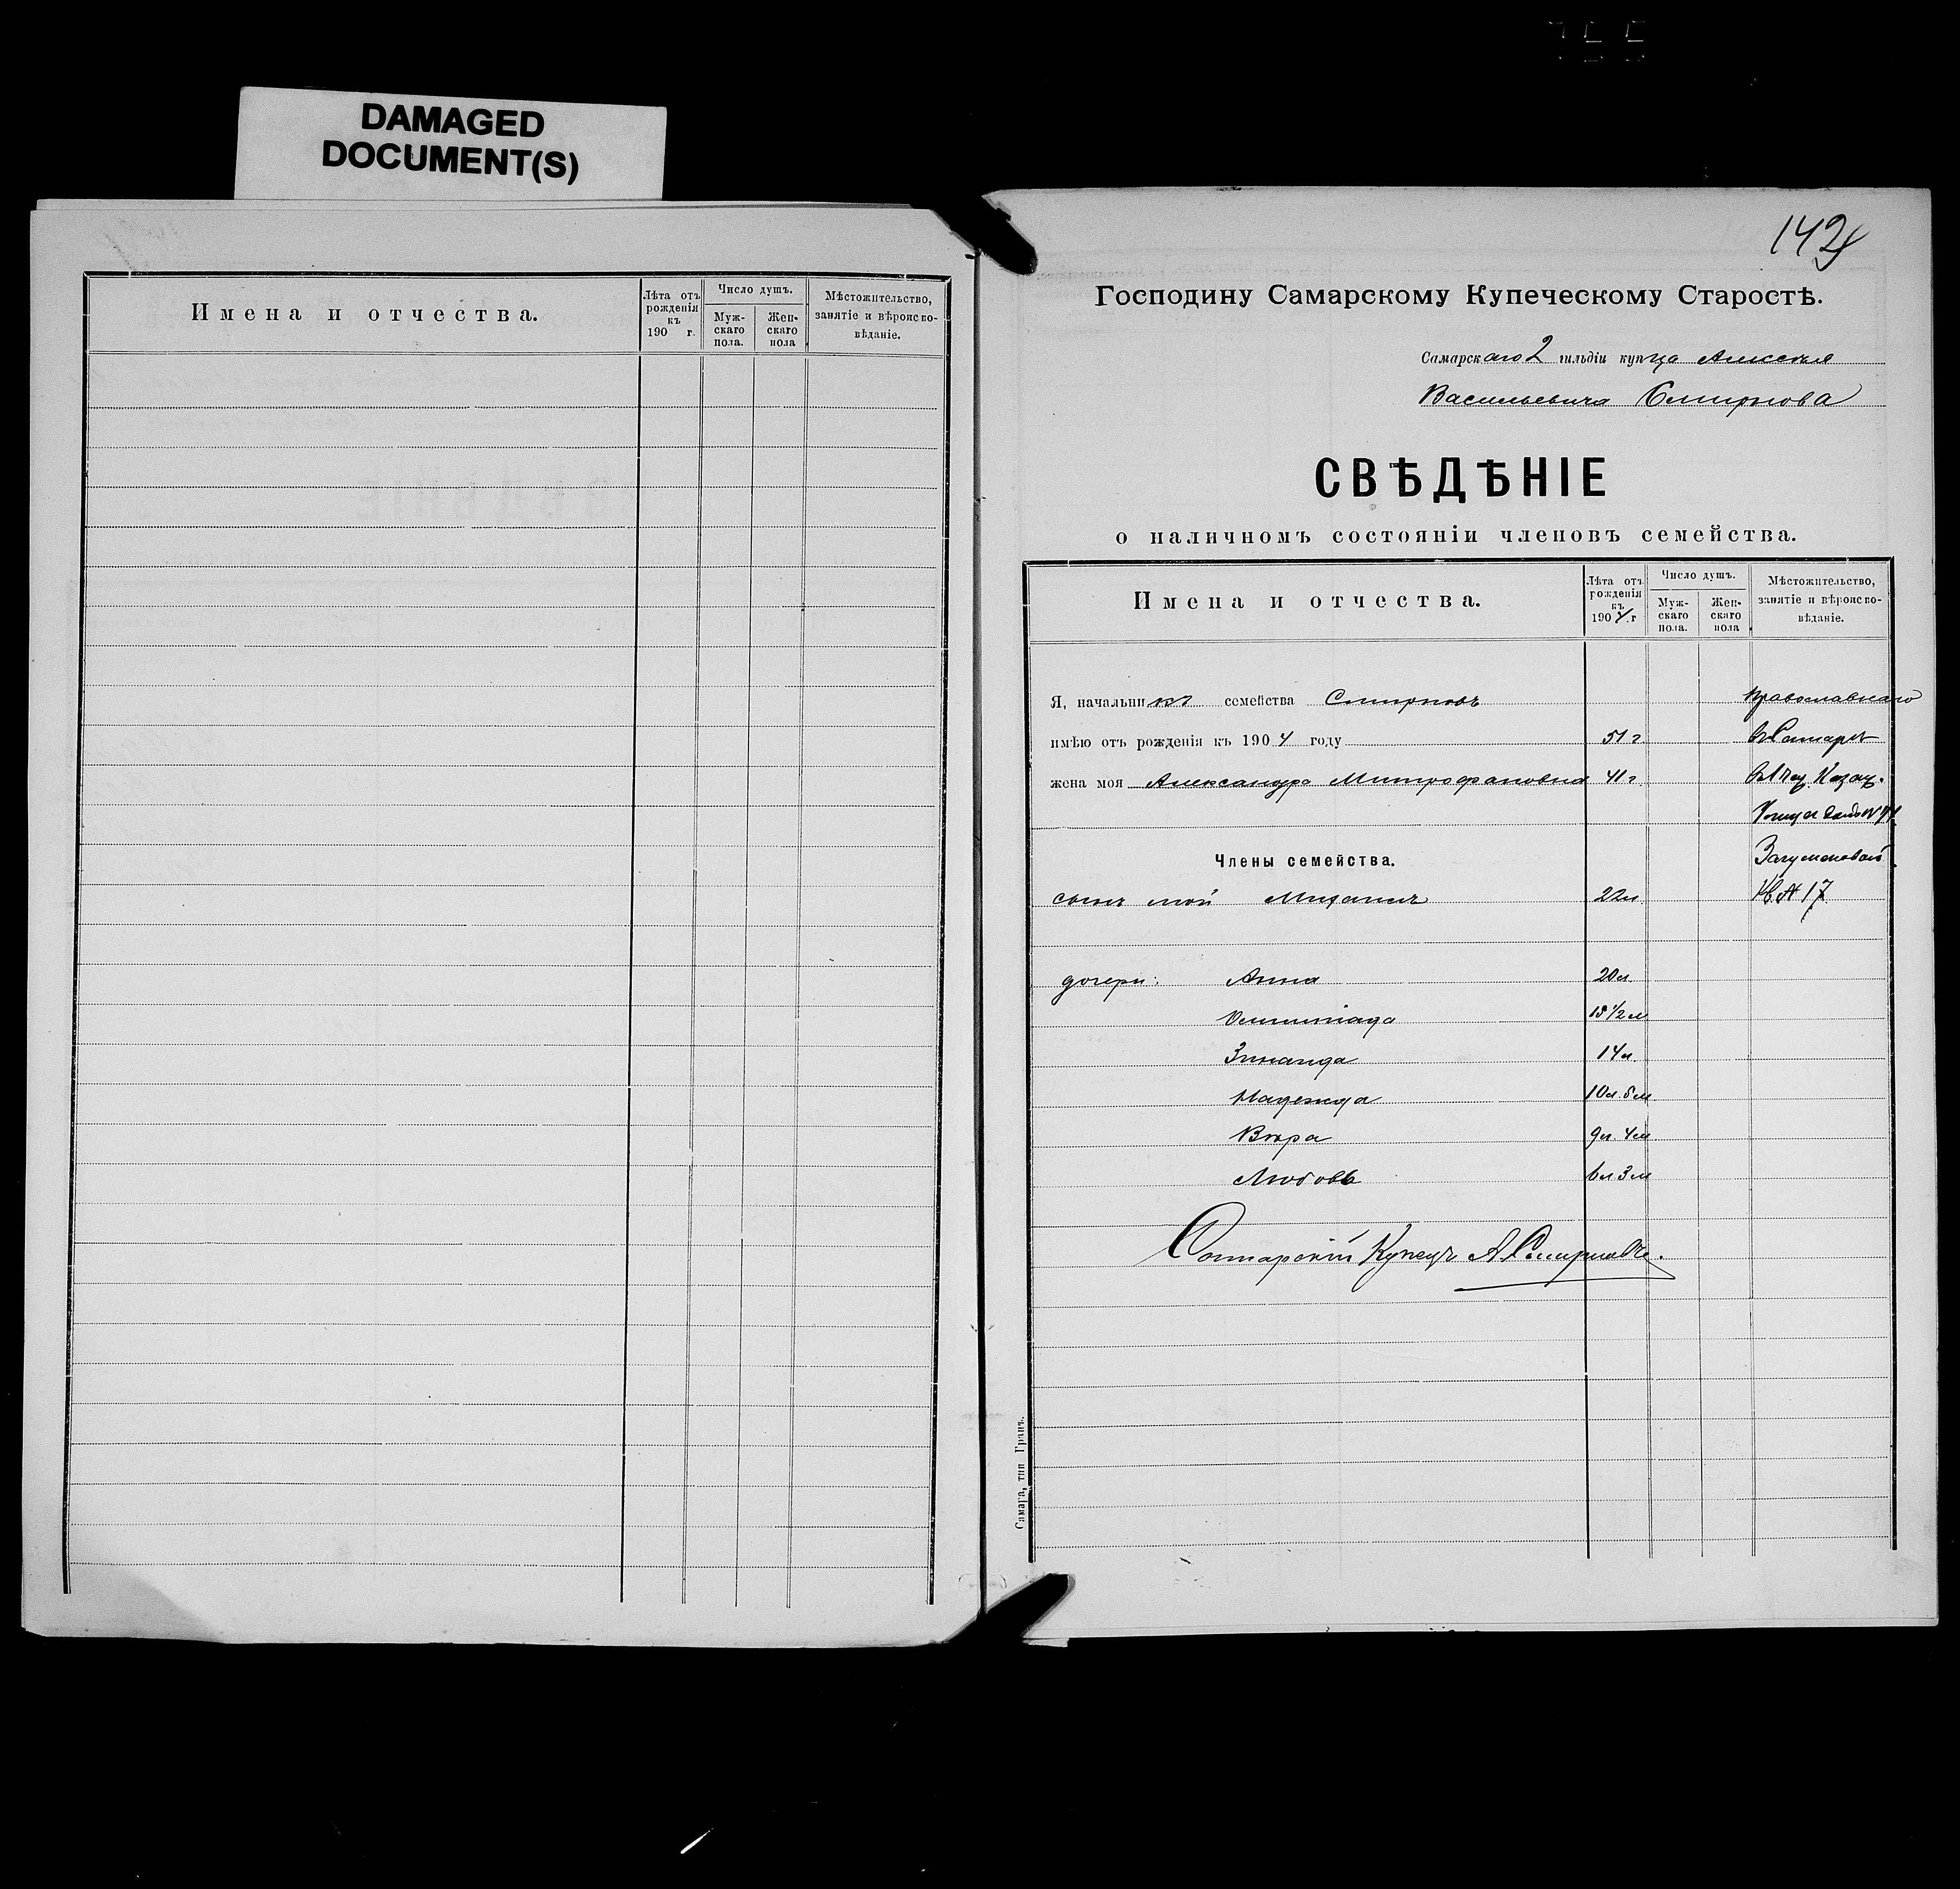 DAMAGED
DOCUMENT(S)
Имена и отчества.
Лѣта отъ рожденія къ 190 г.
Число душъ.
Мужскаго пола.
Женскаго пола
Мѣстожительство, занятіе и вѣроисповѣданіе.
142
Господину Самарскому Купеческому Старостѣ.
Самарскаго 2 гильдіи купца Алексѣя
Васильевича Смирнова
СВѢДѢНІЕ
о наличномъ состояніи членовъ семейства.
Имена и отчества.
Лѣта отъ рожденія къ 1904 г
Число душъ.
Мужскаго пола.
Женскаго пола
Мѣстожительство, занятіе и вѣроисповѣданіе.
Я, начальникъ семейства Смирновъ Православнаго
имѣю отъ рожденія къ 1904 году 51 г въ Самарѣ
жена моя Александра Митрофановна 41 г
Члены семейства.
сынъ мой Михаилъ 22 л Кв. № 17
дочери: Анна 20 л
Олимпіада 18 1/2 л
Зинаида 14 л.
Надежда 10 л. 5 м
Вѣра 9 л. 4 м
Любовь 6 л 3 м
Самарскій Купецъ А Смирновъ.
Самара, тип Гранъ.